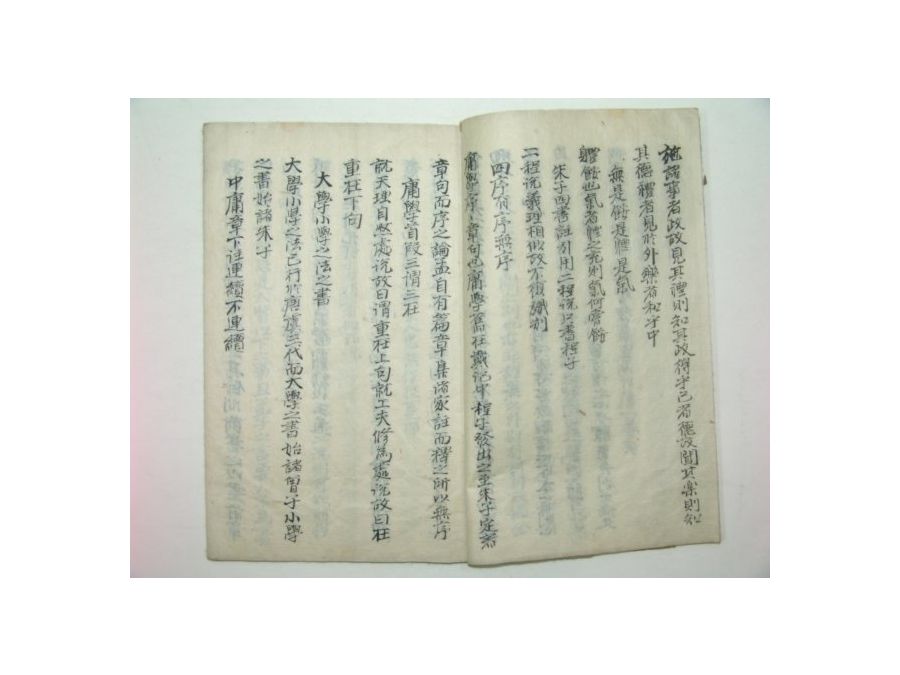 施諸事者政故見其禮則知其政得乎己者德故聞其樂則知
其德禮者見於外樂者和于中
無是餒是體是氣
體餒也氣者體之充則氣何嘗餒
朱子四書註引用二程說只書程子
二程說義理相似故不復識別
四序有序無序
庸學序章句也庸學舊在戴記中程子發出之至朱子定著
章句而序之論孟自有篇章集諸家註而釋之所以無序
庸學首段三謂三在
就天理自然處說故曰謂重在上句就工夫修為處說故曰在
重在下句
大學小學之法之書
大學小學之法已行於唐虞三代而大學之書始諸曾子小學
之書始諸朱子
中庸章下注連續不連續